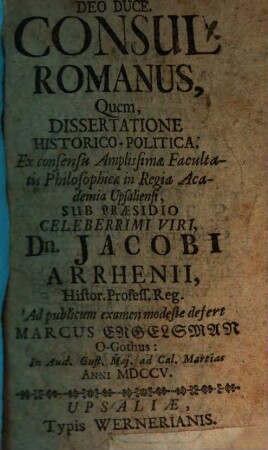 DEO DUCE.
CONSUL
ROMANUS,
Quem,
DISSERTATIONE
HISTORICO-POLITICA,
Ex consensu Amplissimæ Faculta-
tis Philosophicæ in Regia Aca-
demia Upsaliensi,
SUB PRÆSIDIO
CELEBERRIMI VIRI,
Dn. JACOBI
ARRHENII,
Histor. Profess. Reg.
Ad publicum examen modeste defert
MARCUS ENGELSMAN
O-Gothus:
In Aud. Gust. Maj. ad Cal. Martias
ANNI MDCCV.
UPSALIÆ,
Typis WERNERIANIS.